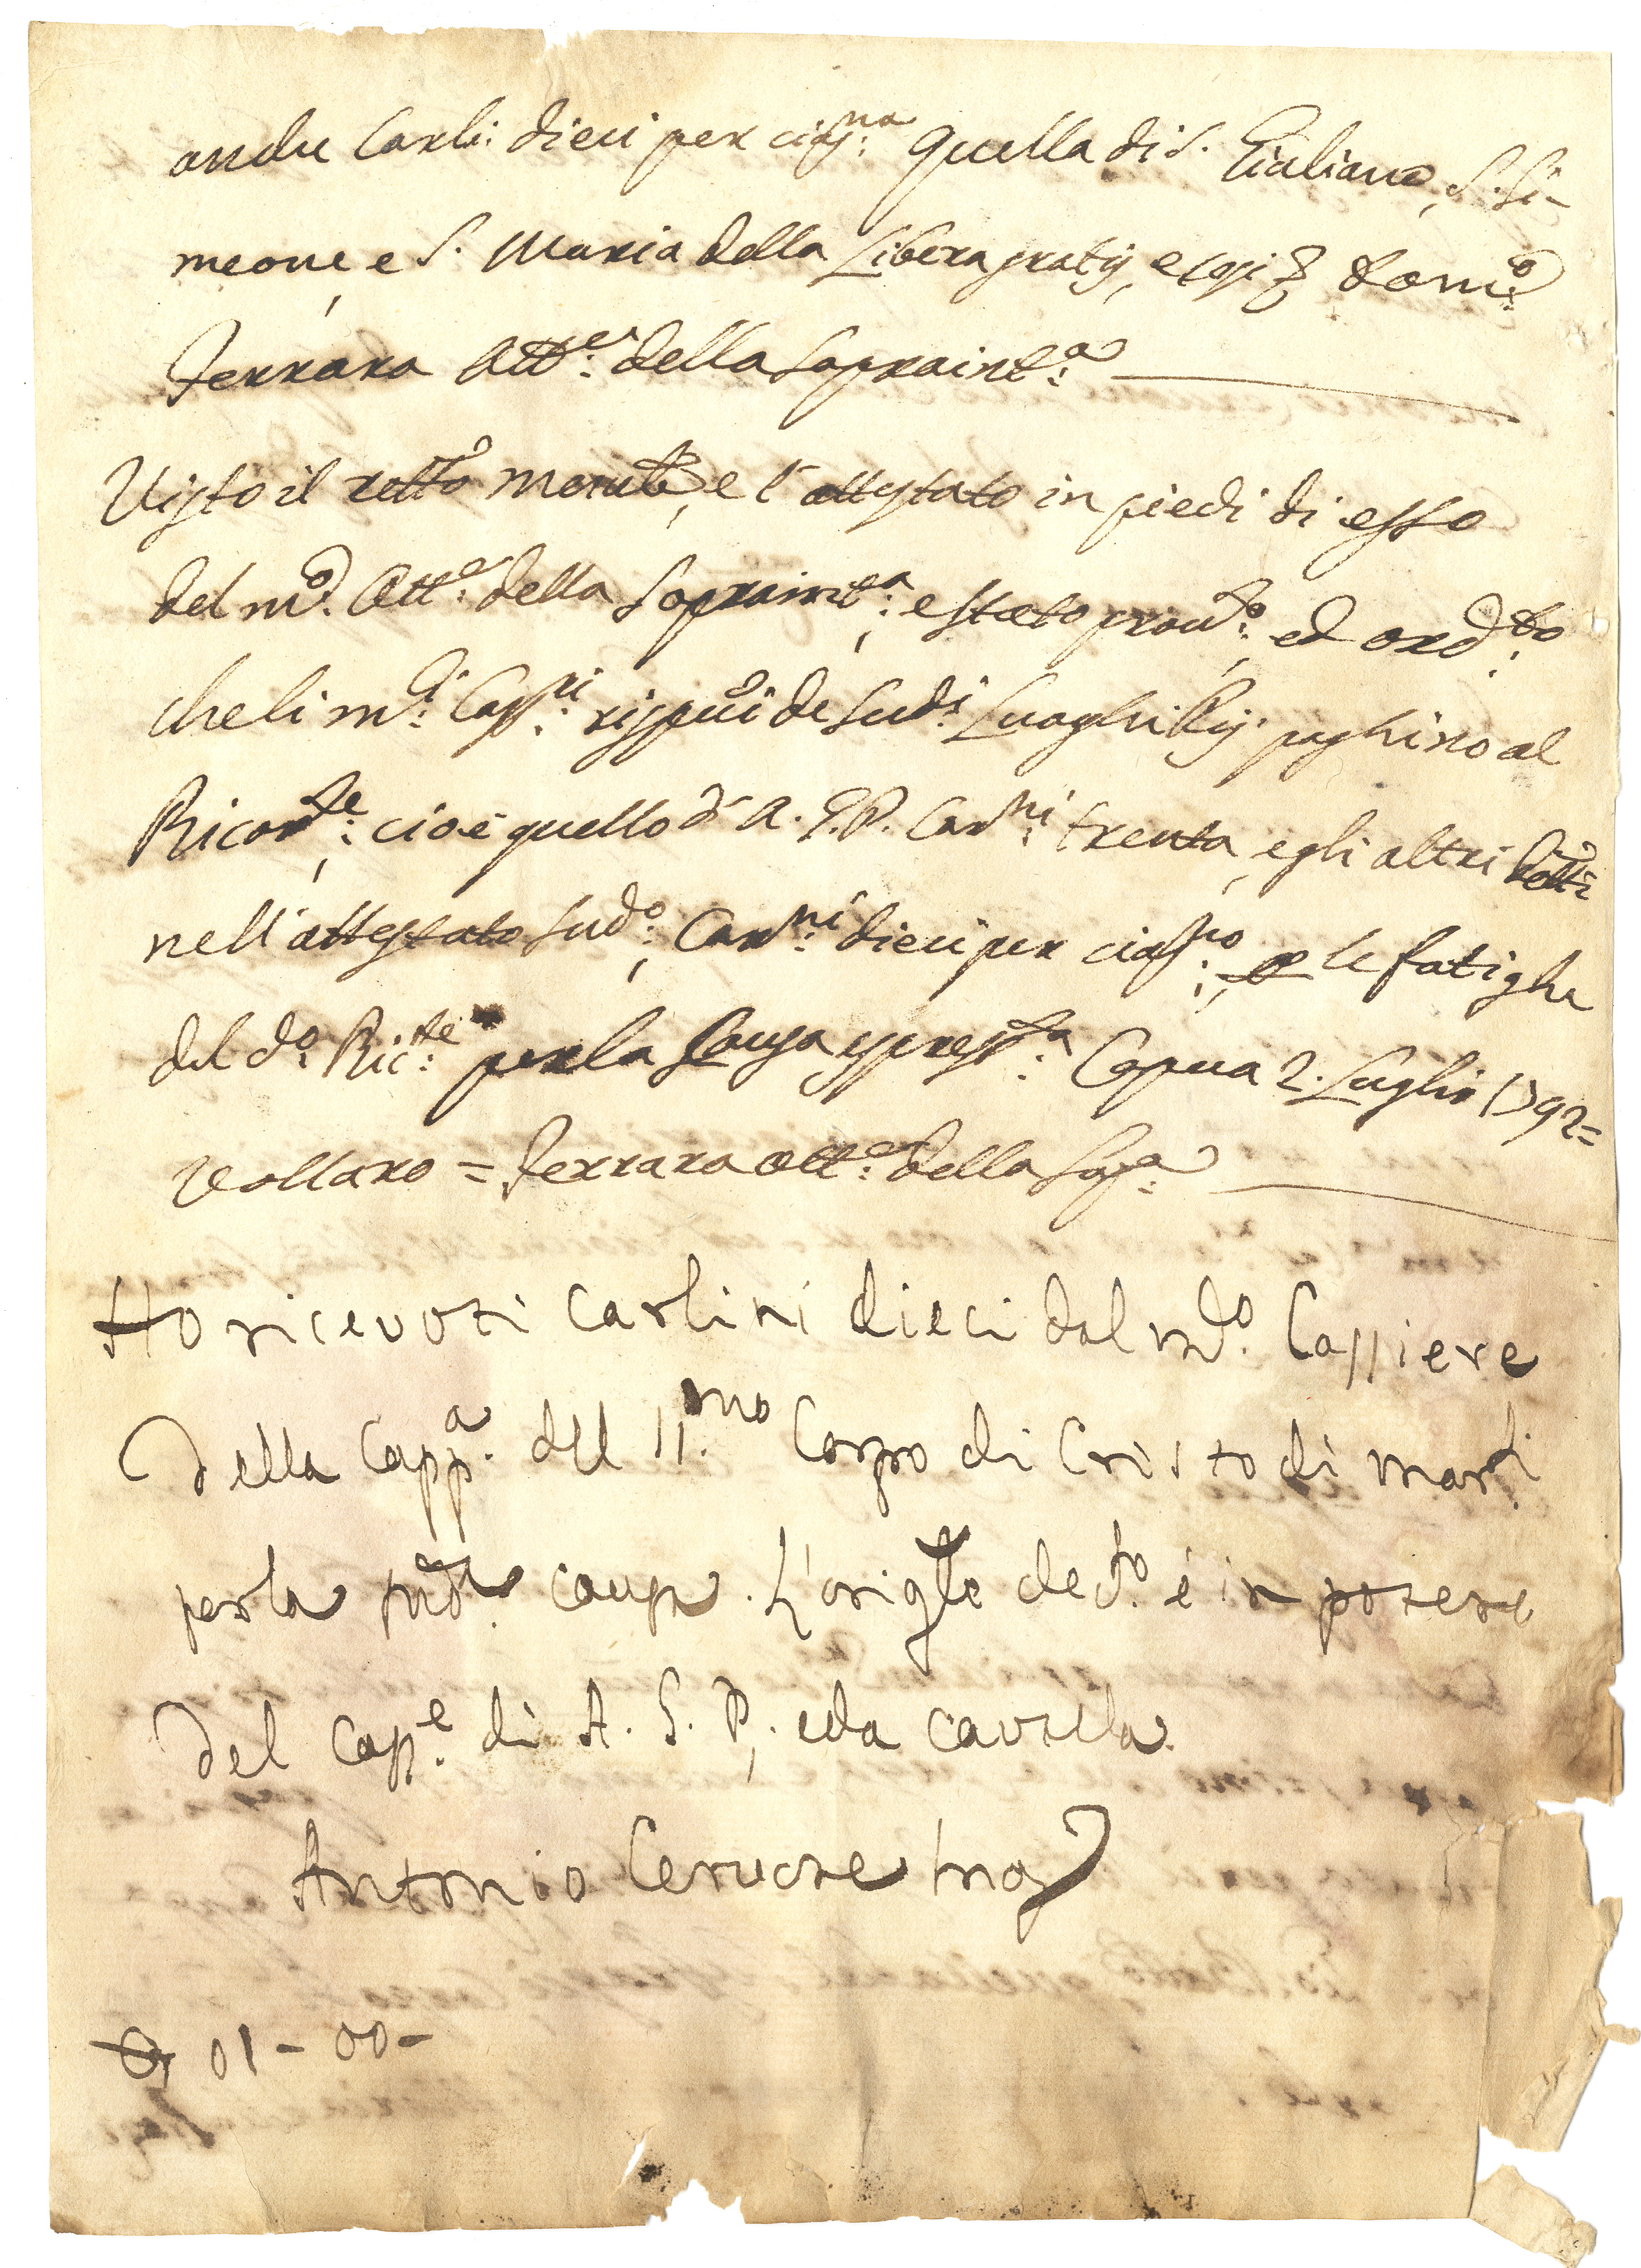 anche Carli: dieci per ciasna: quella di S. Giuliano, S. Si-
meone, e S. Maria della Libera gratij, e così Domo:
Ferrara Atte: della Soprainta:
Visto il retto, e l'attestato in piedi di esso
del mo: Atte: della Soprainta:, è stato provto:, ed ordto:
che li mi: Cassri: rispvi de sudi: Luoghi Pij paghino al
Ricorte:, cioè quello d' A. G. P. Carni: trenta, e gli altri
nell'attestato sudo:, Carni: dieci per ciasno:, le fatighe
del do: Ricte: per la causa espressta: Capua 2. Luglio 1792=
Vollaro = Ferrara Atte: della Sopa:
Ho ricevuti Carlini dieci dal mdo. Cassiere
della Cappa. del SS.mo Corpo di Cristo di
per la causa. L'origle decto. è in potere
del Casse. di A. G. P., ed a cautela.
Antonio
01-00-